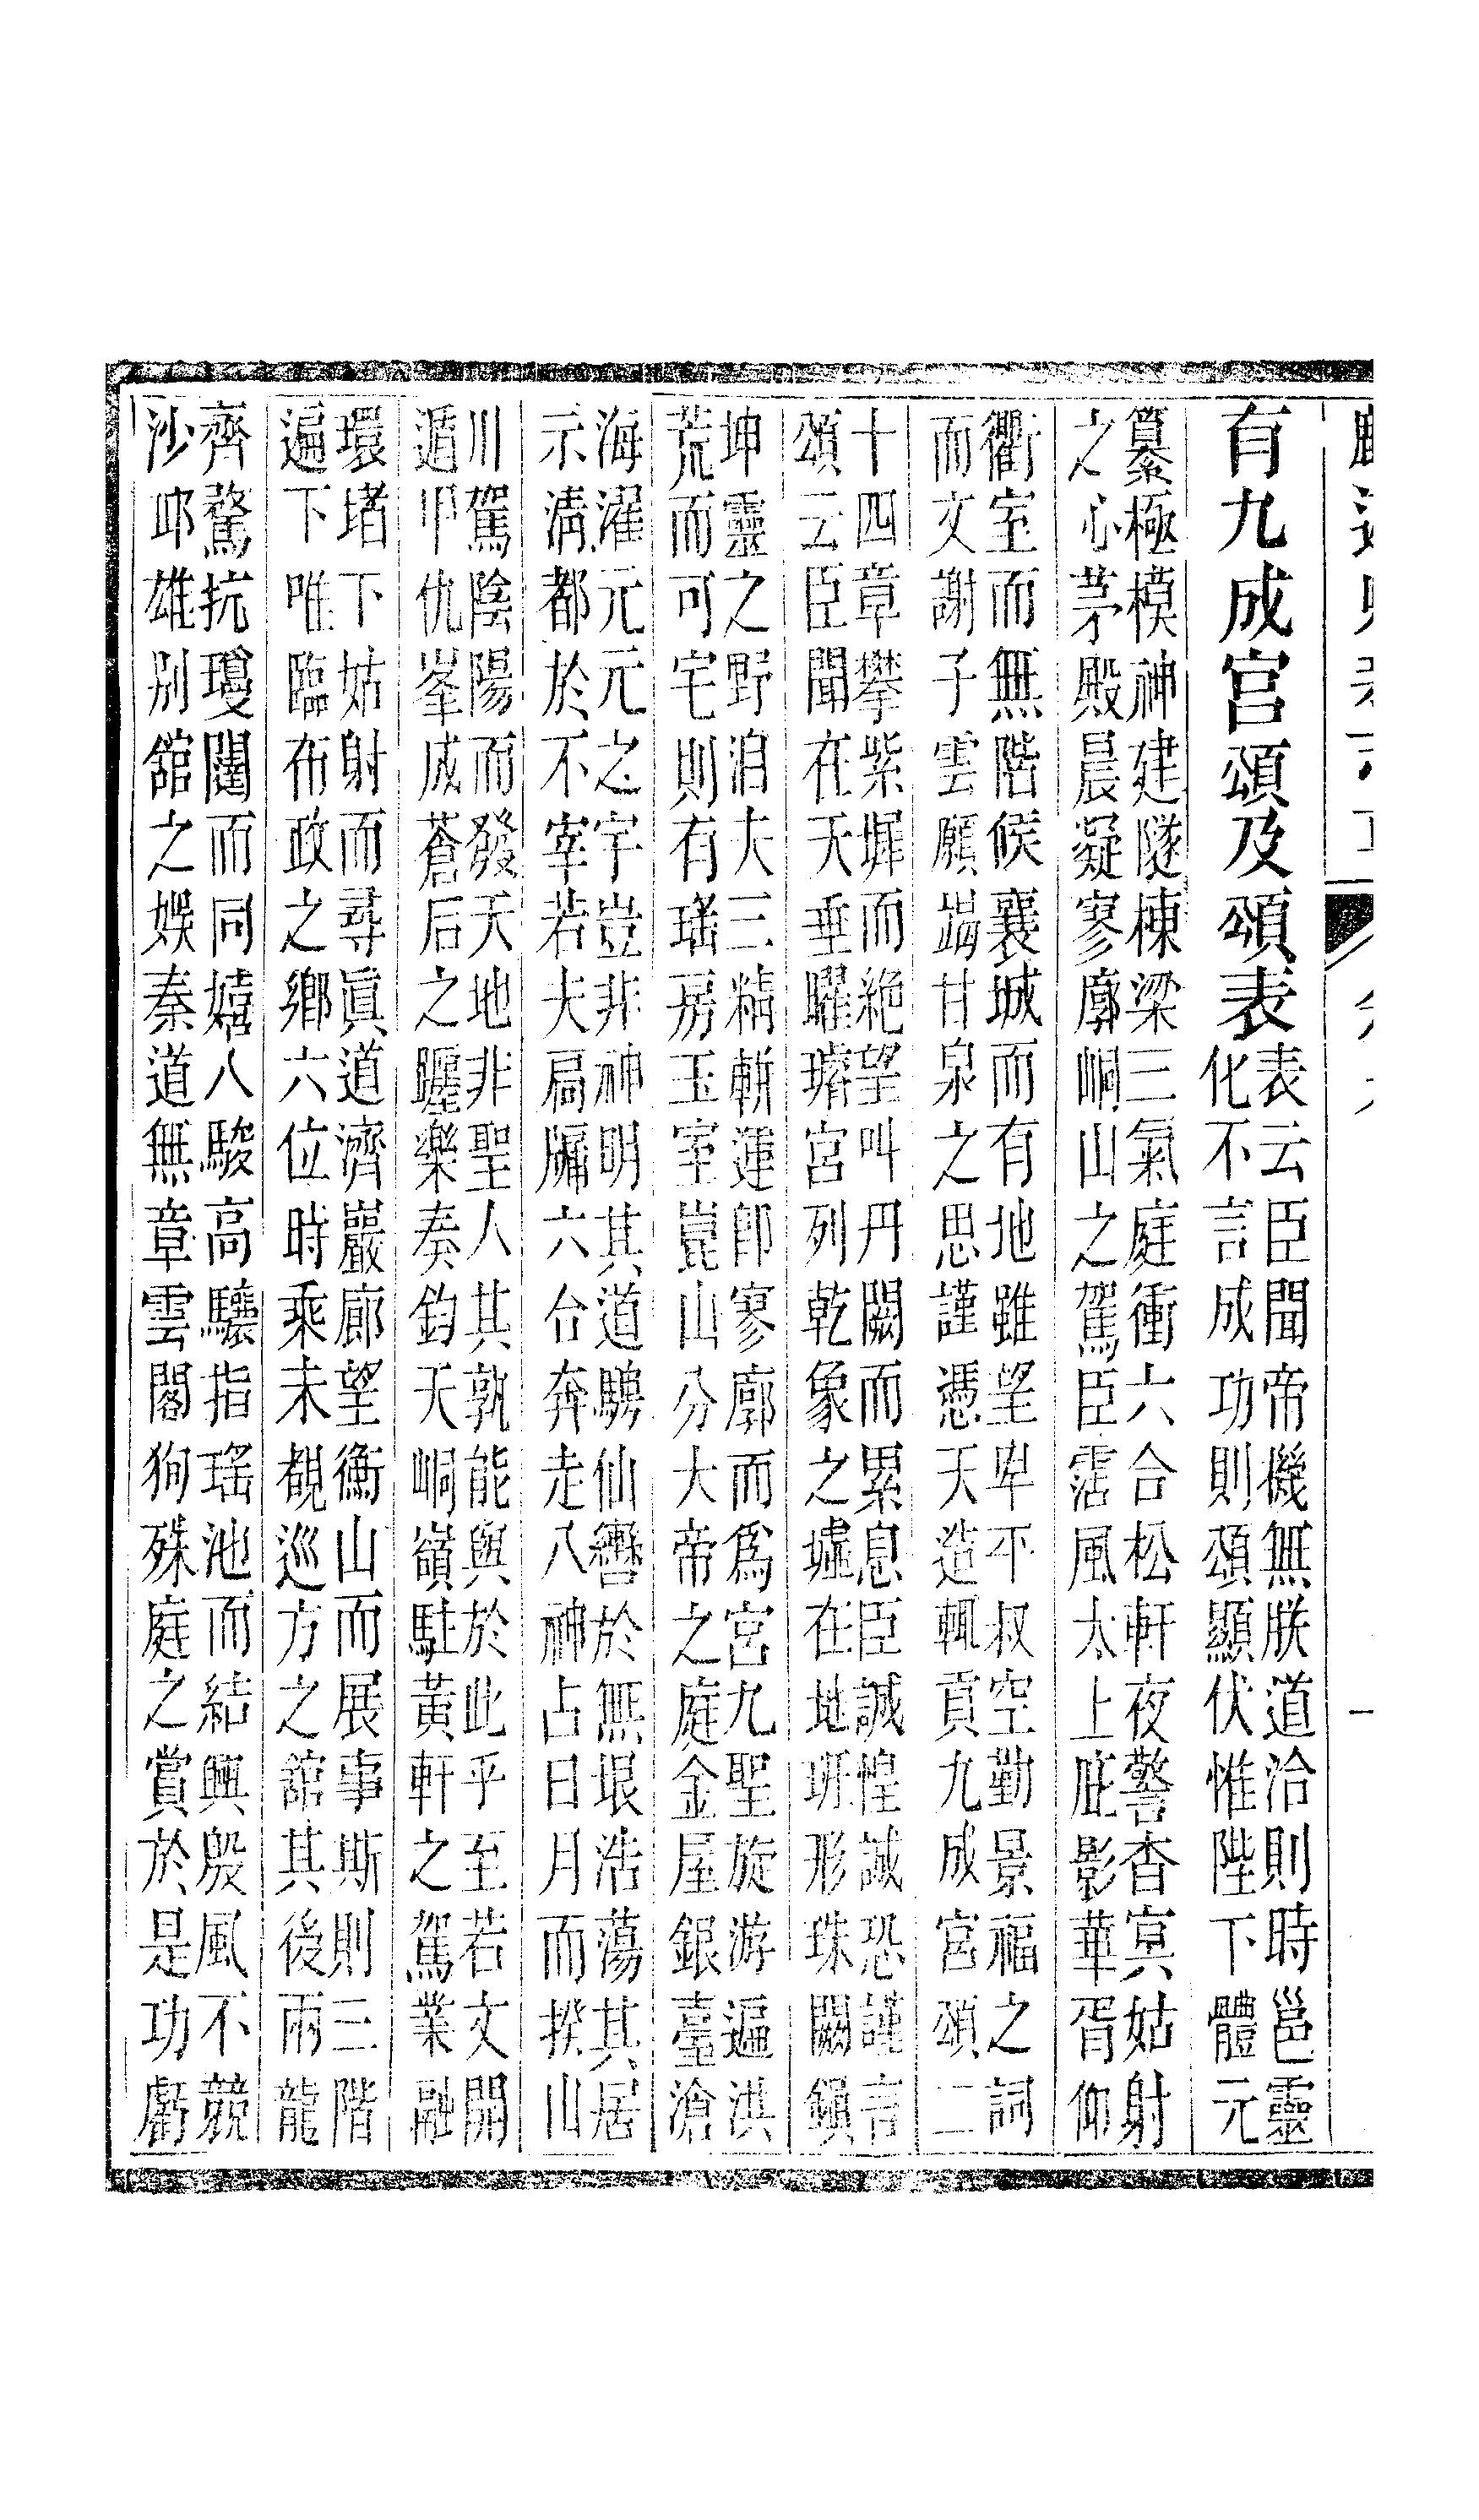 有九成宮頌及頌表
表云臣聞帝機無朕道洽則時邕靈
化不言成功則頌顯伏惟陛下體元
纂極模神建隧棟梁三氣庭衝六合松軒夜警杳冥姑射
之心茅殿晨凝寥廓峒山之駕臣霑風太上庇影華胥仰
衢室而無階候襄城而有地雖望卑平叔空勤景福之詞
而文謝子雲願躡甘泉之思謹憑天造輒貢九成宮頌二
十四章攀紫墀而絶望叫丹闕而累息臣誠惶誠恐謹言
頌云臣聞在天垂曜璿宮列乾象之墟在地班形珠闕鎮
坤靈之野洎夫三精斡運卽寥廓而爲宮九聖旋游遍洪
荒而可宅則有瑤房玉室崑山分大帝之庭金屋銀臺滄
海濯元元之宇豈非神明其道騁仙轡於無垠浩蕩其居
示淸都於不宰若夫扃牖六合奔走八神占日月而揆山
川駕陰陽而發天地非聖人其孰能與於此乎至若文開
遁甲仇峯成蒼后之躔樂奏鈞天峒嶺駐黃軒之駕業融
環堵下姑射而尋眞道濟巖廊望衡山而展事斯則三階
遍下唯臨布政之鄉六位時乘未覩巡方之舘其後兩龍
齊驚抗瓊闥而同嬉八駿高驤指瑤池而結興殷風不競
沙邱雄別舘之娛秦道無章雲閣狥殊庭之賞於是功虧